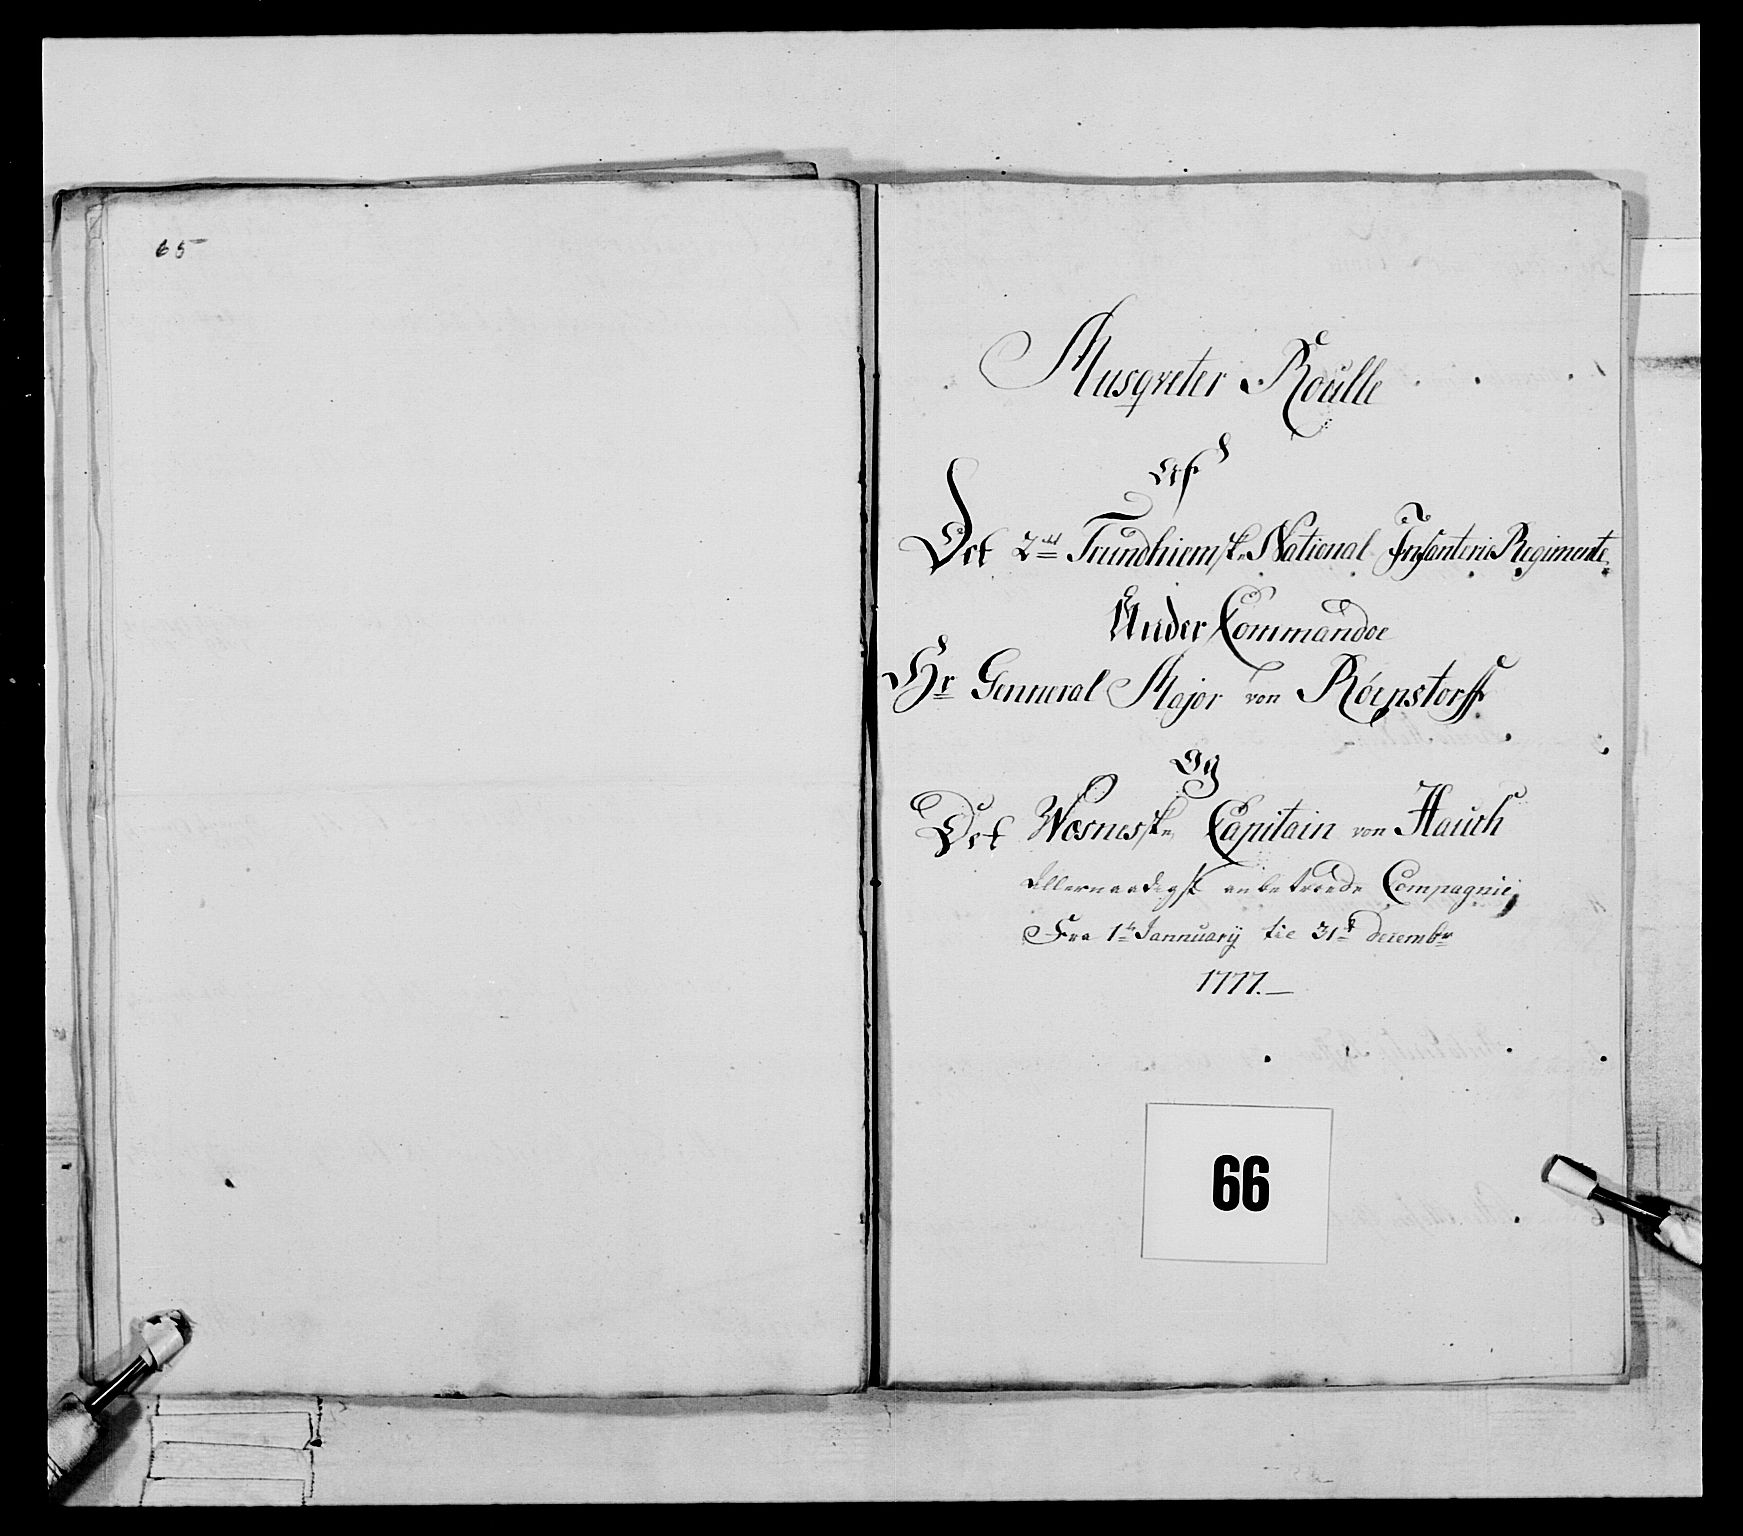 65
Musqveter Roulle
Af
Det 2det Trundhiemske National Infanterie Regimente
Under Commandoe
Hr Genneral Major von Röepstorff
Og
Det Wæsneske Capitain von Hauch
Allernaadigst anbetroede Compagnie,
Fra 1te Jannuarÿ til 31te decembr
1777.
66